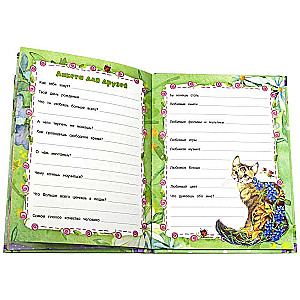 Анкета для друзей
Как тебя зовут?
Твой день рождения
Что ты любишь больше всего?
А чего терпеть не можешь?
Как проводишь свободное время?
О чём мечтаешь?
Чему хочешь научиться?
Что больше всего ценишь в людях?
Самое плохое качество человека
Ты хочешь стать
Любимые книги
Любимые фильмы и мультики
Любимые игры
Любимая музыка
Любимые блюда
Любимый цвет
Что думаешь обо мне?